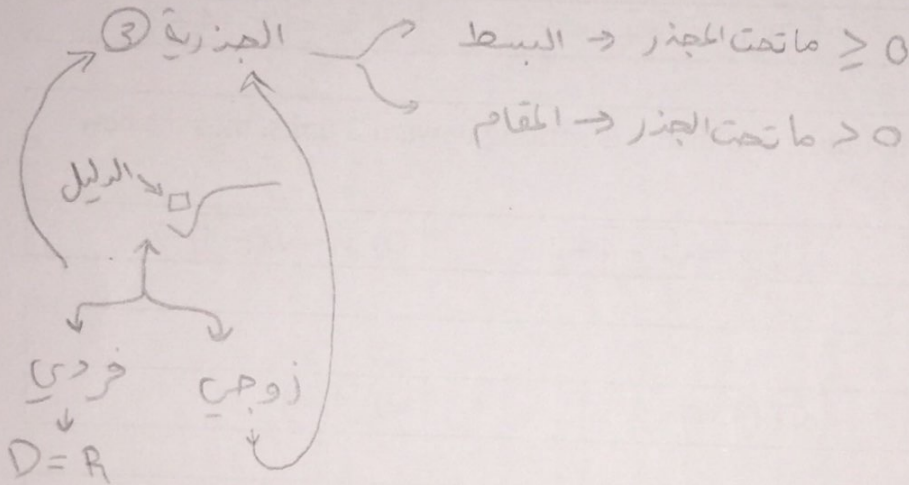 ③ الجذرية
البسط → ما تحت الجذر ≥ 0
المقام → ما تحت الجذر > 0
الدليل
فردي
زوجي
D = R